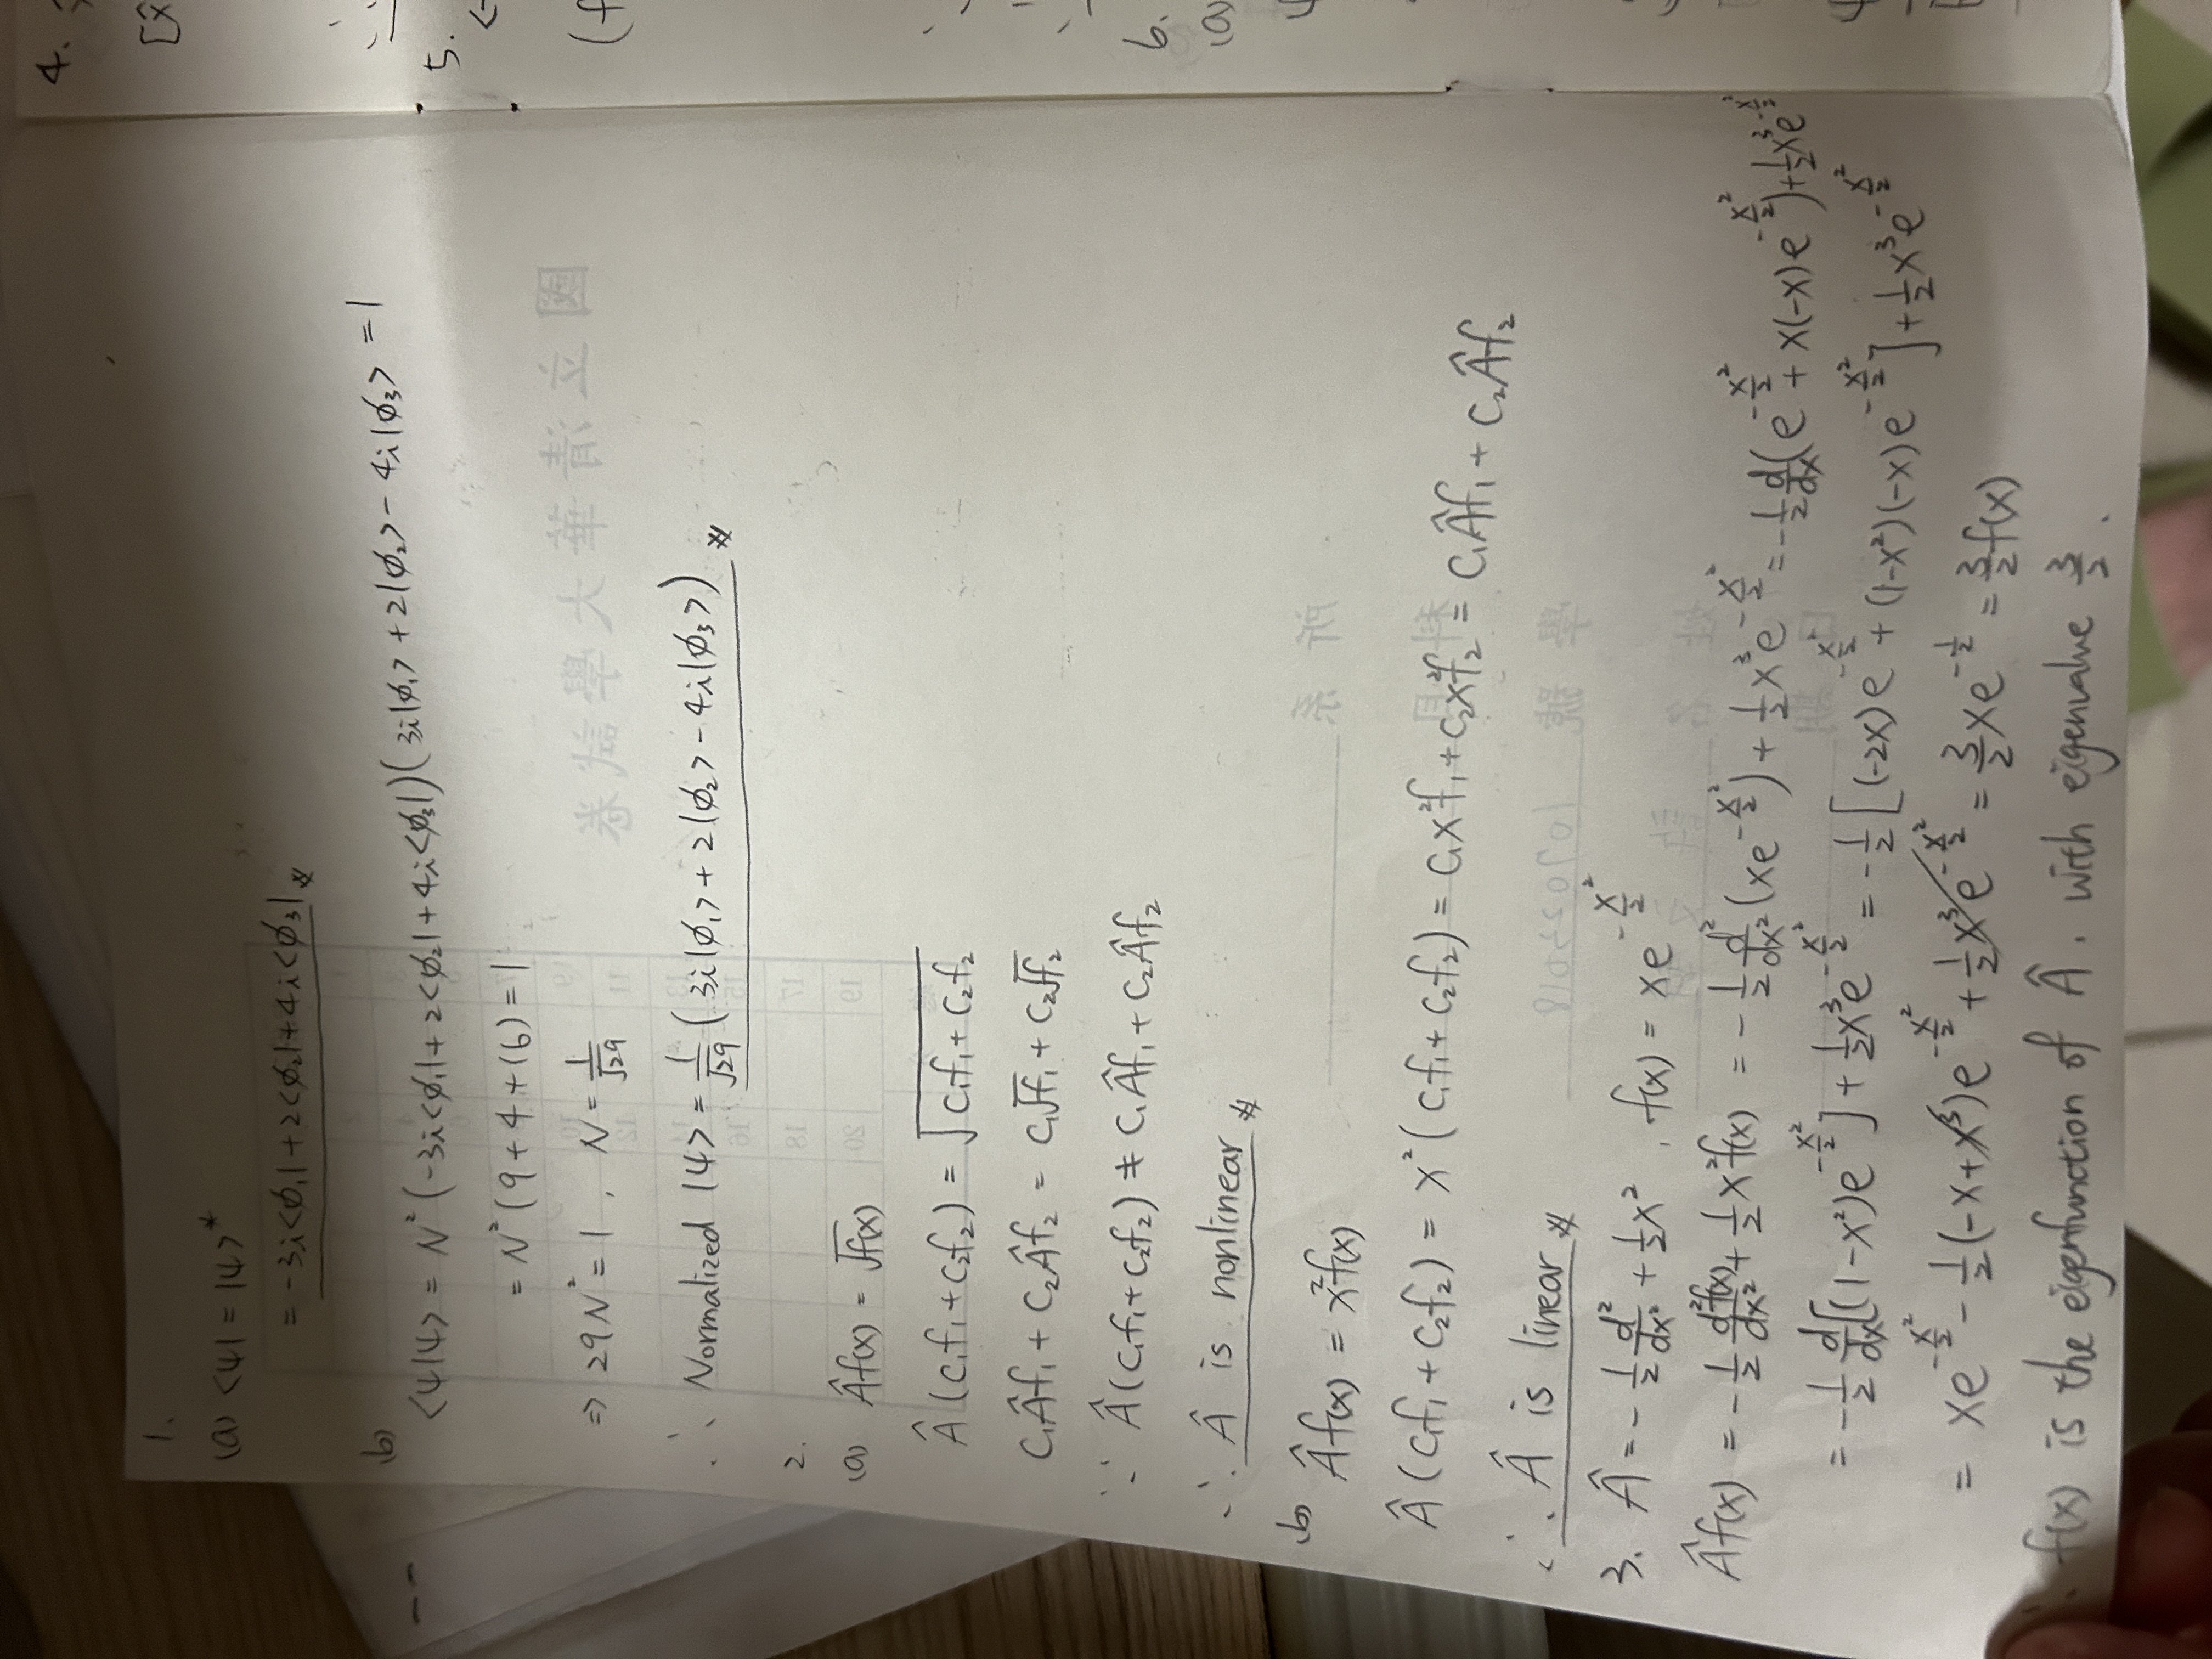 1.
(a) <ψ| = |ψ>*
= -3i<ϕ₁| + 2<ϕ₂| + 4i<ϕ₃| #
(b)
<ψ|ψ> = N² (-3i<ϕ₁| + 2<ϕ₂| + 4i<ϕ₃|)(3i|ϕ₁> + 2|ϕ₂> - 4i|ϕ₃> = 1
= N² (9 + 4 + 16) = 1
⇒ 29N² = 1 , N = 1/√29
∴ Normalized |ψ> = 1/√29 (3i|ϕ₁> + 2|ϕ₂> - 4i|ϕ₃>) #
2.
(a) Âf(x) = √f(x)
Â(c₁f₁ + c₂f₂) = √(c₁f₁ + c₂f₂)
c₁Âf₁ + c₂Âf₂ = c₁√f₁ + c₂√f₂
∵ Â(c₁f₁ + c₂f₂) ≠ c₁Âf₁ + c₂Âf₂
∴ Â is nonlinear #
(b) Âf(x) = x²f(x)
Â(c₁f₁ + c₂f₂) = x²(c₁f₁ + c₂f₂) = c₁x²f₁ + c₂x²f₂ = c₁Âf₁ + c₂Âf₂
∴ Â is linear #
3. Â = -1/2 d²/dx² + 1/2 x² , f(x) = xe^(-x²/2)
Âf(x) = -1/2 d²f(x)/dx² + 1/2 x²f(x) = -1/2 d²/dx² (xe^(-x²/2)) + 1/2 x³e^(-x²/2) = -1/2 d/dx (e^(-x²/2) + x(-x)e^(-x²/2)) + 1/2 x³e^(-x²/2)
= -1/2 d/dx [(1-x²)e^(-x²/2)] + 1/2 x³e^(-x²/2) = -1/2 [(-2x)e^(-x²/2) + (1-x²)(-x)e^(-x²/2)] + 1/2 x³e^(-x²/2)
= xe^(-x²/2) - 1/2 (-x + x³)e^(-x²/2) + 1/2 x³e^(-x²/2) = 3/2 xe^(-1/2) = 3/2 f(x)
f(x) is the eigenfunction of Â. with eigenvalue 3/2.
國立清華大學試卷
所系
科目
學號 107023018
姓名
日期
4.
[x̂
5.
<
(f
6.
(a)